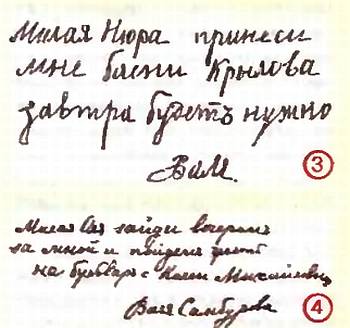 Милая Нюра принеси
мне басни Крылова
завтра будетъ нужно
Валя.
3
Милая Оля зайди вечеромъ
за мной и пойдемъ
на бульваръ с Колей Михайловичем
Валя Самбурова
4